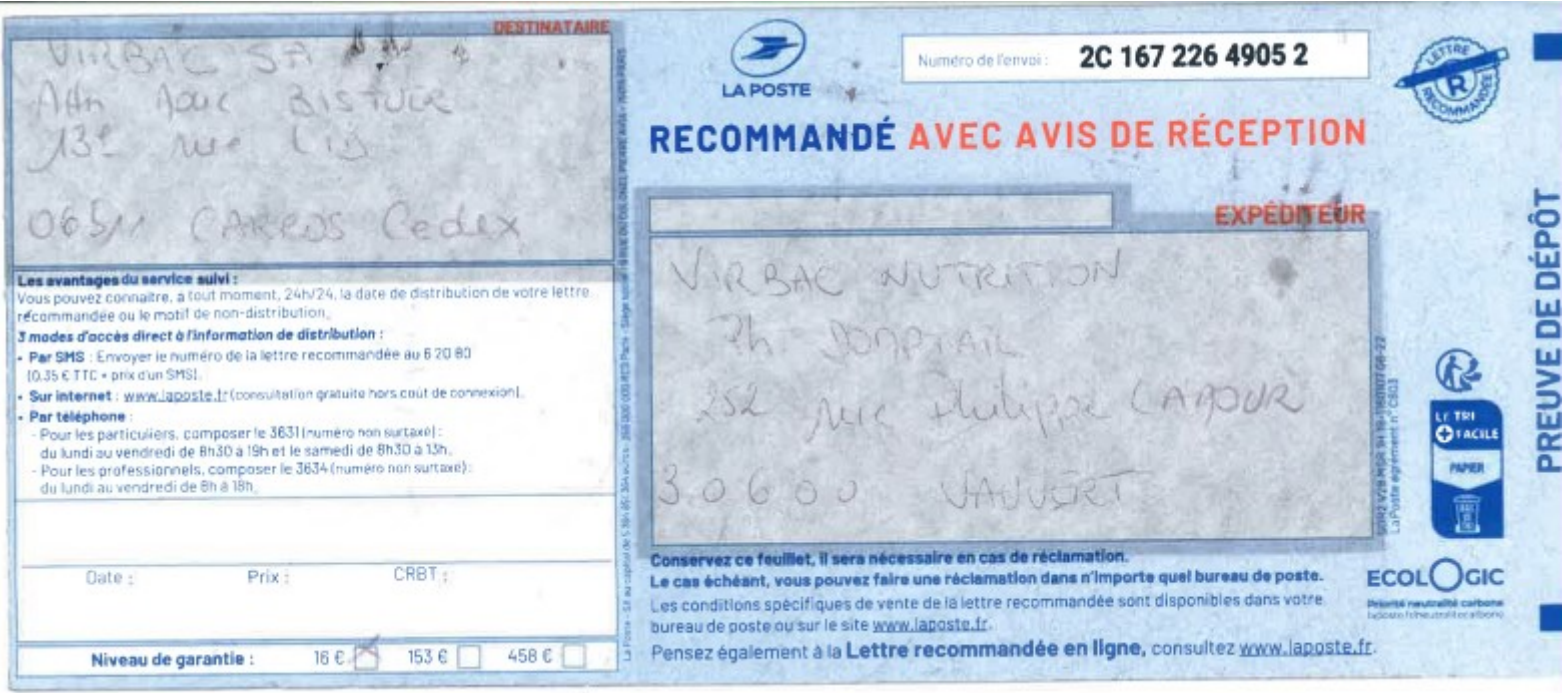 DESTINATAIRE
VIRBAC SA
13e rue LID
06511 CARROS Cedex
Les avantages du service suivi :
Vous pouvez connaître, à tout moment, 24h/24, la date de distribution de votre lettre
recommandée ou le motif de non-distribution.
3 modes d'accès direct à l'information de distribution :
• Par SMS : Envoyer le numéro de la lettre recommandée au 6 20 80
(0,35 € TTC + prix d'un SMS).
• Sur internet : www.laposte.fr (consultation gratuite hors coût de connexion).
• Par téléphone :
- Pour les particuliers, composer le 3631 (numéro non surtaxé) :
du lundi au vendredi de 8h30 à 19h et le samedi de 8h30 à 13h.
- Pour les professionnels, composer le 3634 (numéro non surtaxé) :
du lundi au vendredi de 8h à 18h.
Date : Prix : CRBT :
Niveau de garantie : 16 € 153 € 458 €
LA POSTE
Numéro de l'envoi : 2C 167 226 4905 2
LETTRE
R
RECOMMANDÉE
RECOMMANDÉ AVEC AVIS DE RÉCEPTION
EXPÉDITEUR
VIRBAC NUTRITION
252 rue Philippe LAMOUR
30600 VAUVERT
Conservez ce feuillet, il sera nécessaire en cas de réclamation.
Le cas échéant, vous pouvez faire une réclamation dans n'importe quel bureau de poste.
Les conditions spécifiques de vente de la lettre recommandée sont disponibles dans votre
bureau de poste ou sur le site www.laposte.fr.
Pensez également à la Lettre recommandée en ligne, consultez www.laposte.fr.
PREUVE DE DÉPÔT
LE TRI
+ FACILE
PAPIER
BAC DE TRI
ECOLOGIC
Priorité neutralité carbone
La Poste agrément n° C803